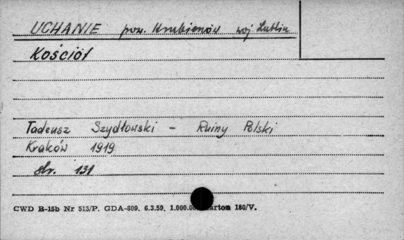 UCHANIE pow. Hrubieszów woj. Lublin
Kościół
Tadeusz Szydłowski - Ruiny Polski
Kraków 1919
str. 131
CWD B-15b Nr 513/P. GDA-809. 6.3.59. 1.000.00 karton 180/V.